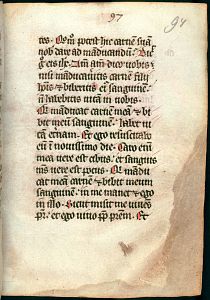 97
94
tes. Quō potest hic carnē suā
nob̄ dare ad māducandū. Dix̄
g̊ eis ih̄c. Am̄ am̄ dico vobis
nisi māducaveritis carnē filij
ho̅i̅s et biberitis ei̅ sanguinē
n̄ habebitis vitā in vobis.
Qui māducat meā carnē et bi
bit meū sanguinē. habet vi
tā eternā. Et ego resuscitabo
eū ī novissimo die. Caro eni̅
mea vere est cibus. et sanguis
meus vere est potus. Qui mādu
cat meā carnē et bibit meum
sanguinē. in me manet et ego
in illo. Sicut misit me vivēs
pr̄. et ego vivo ꝓp̄ prēm. Et